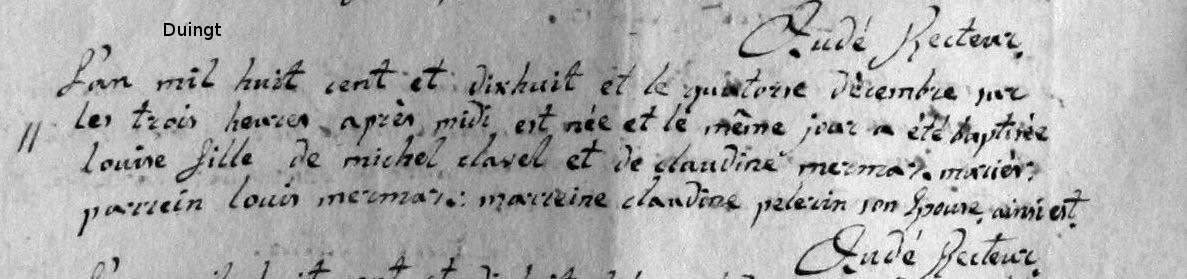 Duingt
Audé Recteur.
L'an mil huit cent et dixhuit et le quatorse décembre sur
11 les trois heures après midi est née et le même jour a été baptisée
louise fille de michel clavel et de claudine mermas. mariés:
parrein louis mermas: marreine claudine pelerin son épouse, ainsi est
Audé Recteur.
L'an mil huit cent et dixhuit